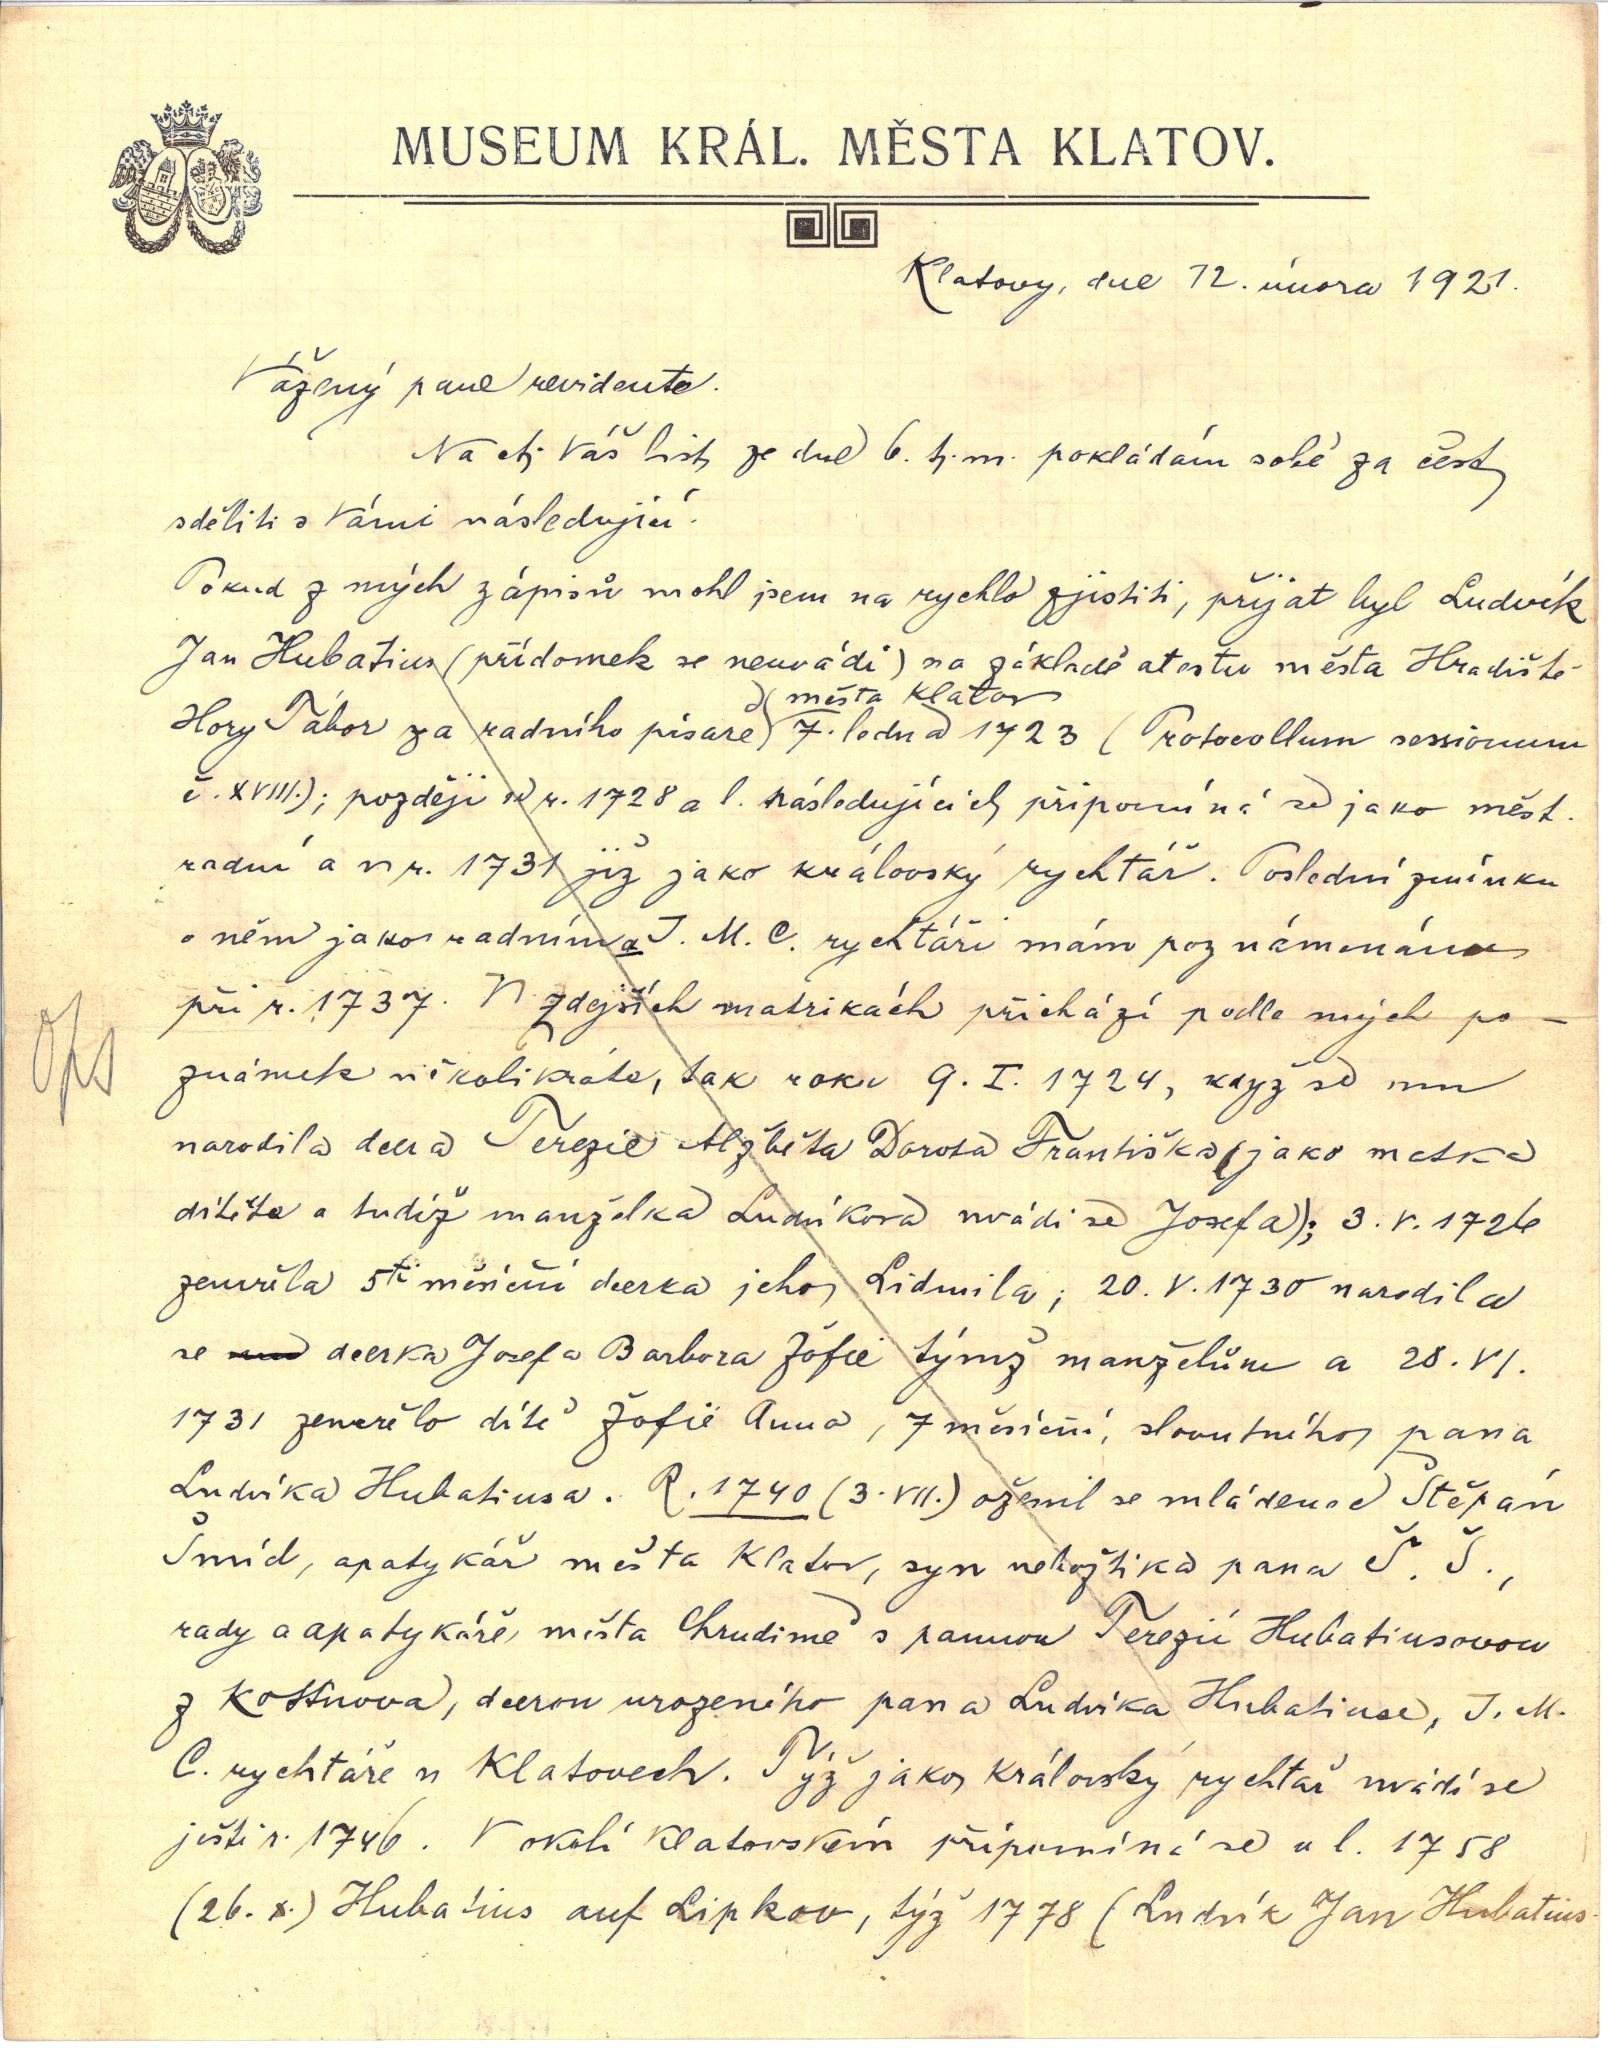 MUSEUM KRÁL. MĚSTA KLATOV.
Klatovy, dne 12. února 1921.
Vážený pane revidente.
Na ct. Váš list ze dne 6. t. m. pokládám sobě za čest
sděliti s Vámi následující.
Pokud z mých zápisů mohl jsem na rychlo zjistiti, přijat byl Ludvík
Jan Hubatius (přídomek se neuvádí) na základě atestu města Hradiště
města Klatov
Hory Tábor za radního písaře 7. ledna 1723 (Protocollum sessionum
č. XVIII.); později v r. 1728 a l. následujících připomíná se jako měst.
radní a v r. 1731 již jako královský rychtář. Poslední zmínku
o něm jako radním a J. M. C. rychtáři mám poznamenánu
při r. 1737. V zdejších matrikách přichází podle mých po-
známek několikráte, tak roku 9. I. 1724, když se mu
narodila dcera Terezie Alžběta Dorota Františka (jako matka
dítěte a tudíž manželka Ludvíkova uvádí se Josefa); 3. V. 1726
zemřela 5ti měsíční dcerka jeho Lidmila; 20. V. 1730 narodila
se dcerka Josefa Barbora Žofie týmž manželům a 28. VI.
1731 zemřelo dítě Žofie Anna, 7 měsíční, slovutného pana
Ludvíka Hubatiusa. R. 1740 (3. VII.) oženil se mládenec Štěpán
Šmíd, apatykář města Klatov, syn nebožtíka pana Š. Š.,
rady a apatykáře města Chrudimě s pannou Terezií Hubatiusovou
z Kottnova, dcerou urozeného pana Ludvíka Hubatiuse, J. M.
C. rychtáře v Klatovech. Týž jako královský rychtář uvádí se
ještě r. 1746. V okolí Klatovském připomíná se u l. 1758
(26. X.) Hubatius auf Lipkov, týž 1778 (Ludvík Jan Hubatius-
Ops